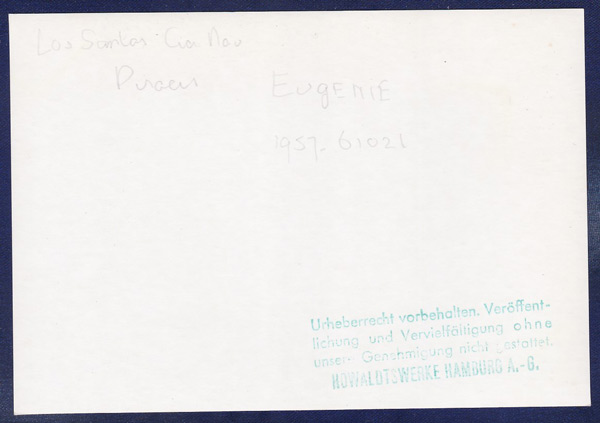 Los Santos Cia Nav
EUGENIE
1957- 61021
Urheberrecht vorbehalten. Veröffent-
lichung und Vervielfältigung ohne
unser. Genehmigung nicht gestattet.
HOWALDTSWERKE HAMBURG A.-G.